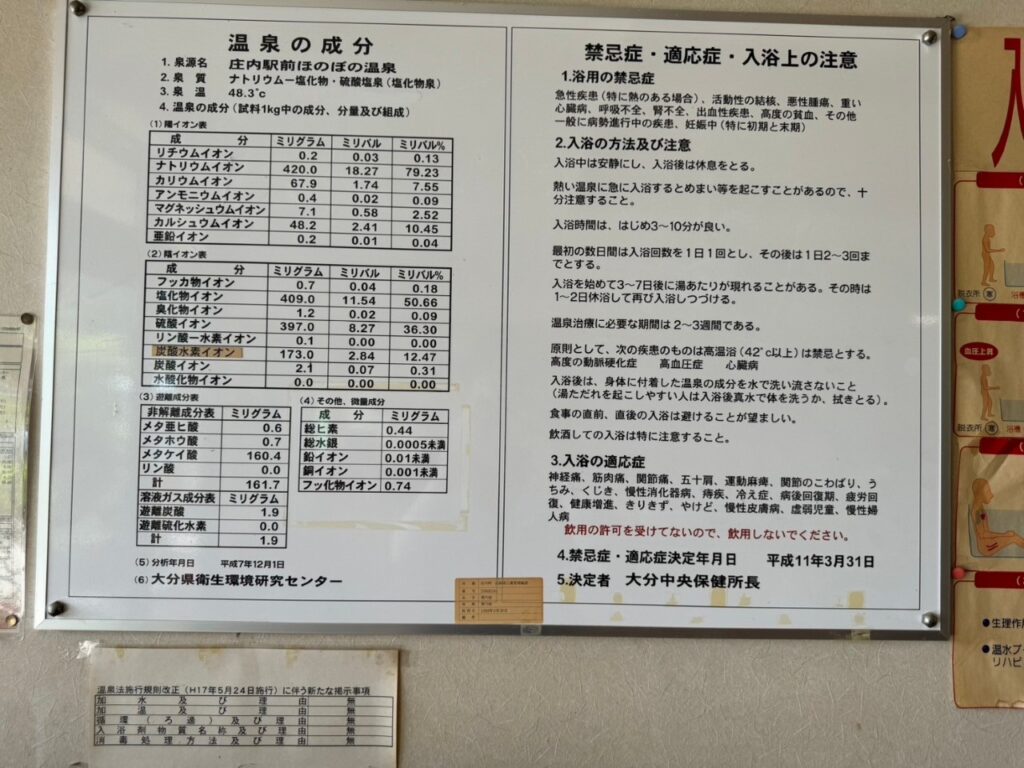 温泉の成分
1. 泉源名 庄内駅前ほのぼの温泉
2. 泉 質 ナトリウムー塩化物・硫酸塩泉（塩化物泉）
3. 泉 温 48.3°c
4. 温泉の成分（試料1kg中の成分、分量及び組成）
(1) 陽イオン表
成 分 ミリグラム ミリバル ミリバル%
リチウムイオン 0.2 0.03 0.13
ナトリウムイオン 420.0 18.27 79.23
カリウムイオン 67.9 1.74 7.55
アンモニウムイオン 0.4 0.02 0.09
マグネッシュウムイオン 7.1 0.58 2.52
カルシュウムイオン 48.2 2.41 10.45
亜鉛イオン 0.2 0.01 0.04
(2) 陽イオン表
成 分 ミリグラム ミリバル ミリバル%
フッカ物イオン 0.7 0.04 0.18
塩化物イオン 409.0 11.54 50.66
臭化物イオン 1.2 0.02 0.09
硫酸イオン 397.0 8.27 36.30
リン酸ー水素イオン 0.1 0.00 0.00
炭酸水素イオン 173.0 2.84 12.47
炭酸イオン 2.1 0.07 0.31
水酸化物イオン 0.0 0.00 0.00
(3) 遊離成分表
非解離成分表 ミリグラム
メタ亜ヒ酸 0.6
メタホウ酸 0.7
メタケイ酸 160.4
リン酸 0.0
計 161.7
溶液ガス成分表 ミリグラム
遊離炭酸 1.9
遊離硫化水素 0.0
計 1.9
(4) その他、微量成分
成 分 ミリグラム
総ヒ素 0.44
総水銀 0.0005未満
鉛イオン 0.01未満
銅イオン 0.001未満
フッ化物イオン 0.74
(5) 分析年月日 平成7年12月1日
(6) 大分県衛生環境研究センター
禁忌症・適応症・入浴上の注意
1.浴用の禁忌症
急性疾患（特に熱のある場合）、活動性の結核、悪性腫瘍、重い
心臓病、呼吸不全、腎不全、出血性疾患、高度の貧血、その他
一般に病勢進行中の疾患、妊娠中（特に初期と末期）
2.入浴の方法及び注意
入浴中は安静にし、入浴後は休息をとる。
熱い温泉に急に入浴するとめまい等を起こすことがあるので、十
分注意すること。
入浴時間は、はじめ3〜10分が良い。
最初の数日間は入浴回数を１日１回とし、その後は１日2〜3回ま
でとする。
入浴を始めて3〜7日後に湯あたりが現れることがある。その時は
1〜2日休浴して再び入浴しつづける。
温泉治療に必要な期間は 2〜3週間である。
原則として、次の疾患のものは高温浴（42°c以上）は禁忌とする。
高度の動脈硬化症 高血圧症 心臓病
入浴後は、身体に付着した温泉の成分を水で洗い流さないこと
（湯ただれを起こしやすい人は入浴後真水で体を洗うか、拭きとる）。
食事の直前、直後の入浴は避けることが望ましい。
飲酒しての入浴は特に注意すること。
3.入浴の適応症
神経痛、筋肉痛、関節痛、五十肩、運動麻痺、関節のこわばり、う
ちみ、くじき、慢性消化器病、痔疾、冷え症、病後回復期、疲労回
復、健康増進、きりきず、やけど、慢性皮膚病、虚弱児童、慢性婦
人病
飲用の許可を受けてないので、飲用しないでください。
4.禁忌症・適応症決定年月日 平成11年3月31日
5.決定者 大分中央保健所長
温泉法施行規則改正（H17年5月24日施行）に伴う新たな掲示事項
加水及び理由 無
加温及び理由 無
循環（ろ過）及び理由 無
入浴剤物質名称及び理由 無
消毒処理方法及び理由 無
入
脱衣所 寒 浴槽
血圧上昇
脱衣所 寒 浴槽
●生理作用
●温水プー
リハビ